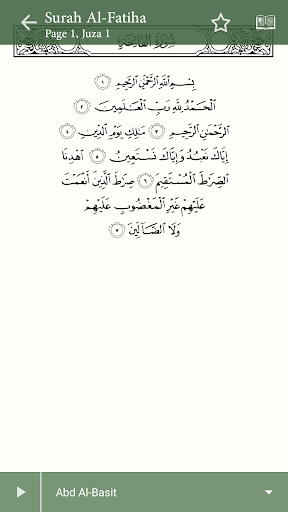 Surah Al-Fatiha
Page 1, Juza 1
سُورَةُ الفَاتِحَةِ
بِسْمِ اللَّهِ الرَّحْمَٰنِ الرَّحِيمِ ١
الْحَمْدُ لِلَّهِ رَبِّ الْعَالَمِينَ ٢
الرَّحْمَٰنِ الرَّحِيمِ ٣ مَالِكِ يَوْمِ الدِّينِ ٤
إِيَّاكَ نَعْبُدُ وَإِيَّاكَ نَسْتَعِينُ ٥ اهْدِنَا
الصِّرَاطَ الْمُسْتَقِيمَ ٦ صِرَاطَ الَّذِينَ أَنْعَمْتَ
عَلَيْهِمْ غَيْرِ الْمَغْضُوبِ عَلَيْهِمْ
وَلَا الضَّالِّينَ ٧
Abd Al-Basit